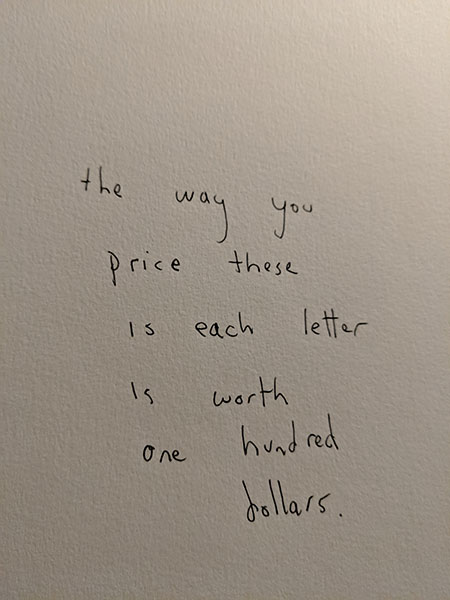 the way you
price these
is each letter
is worth
one hundred
dollars.